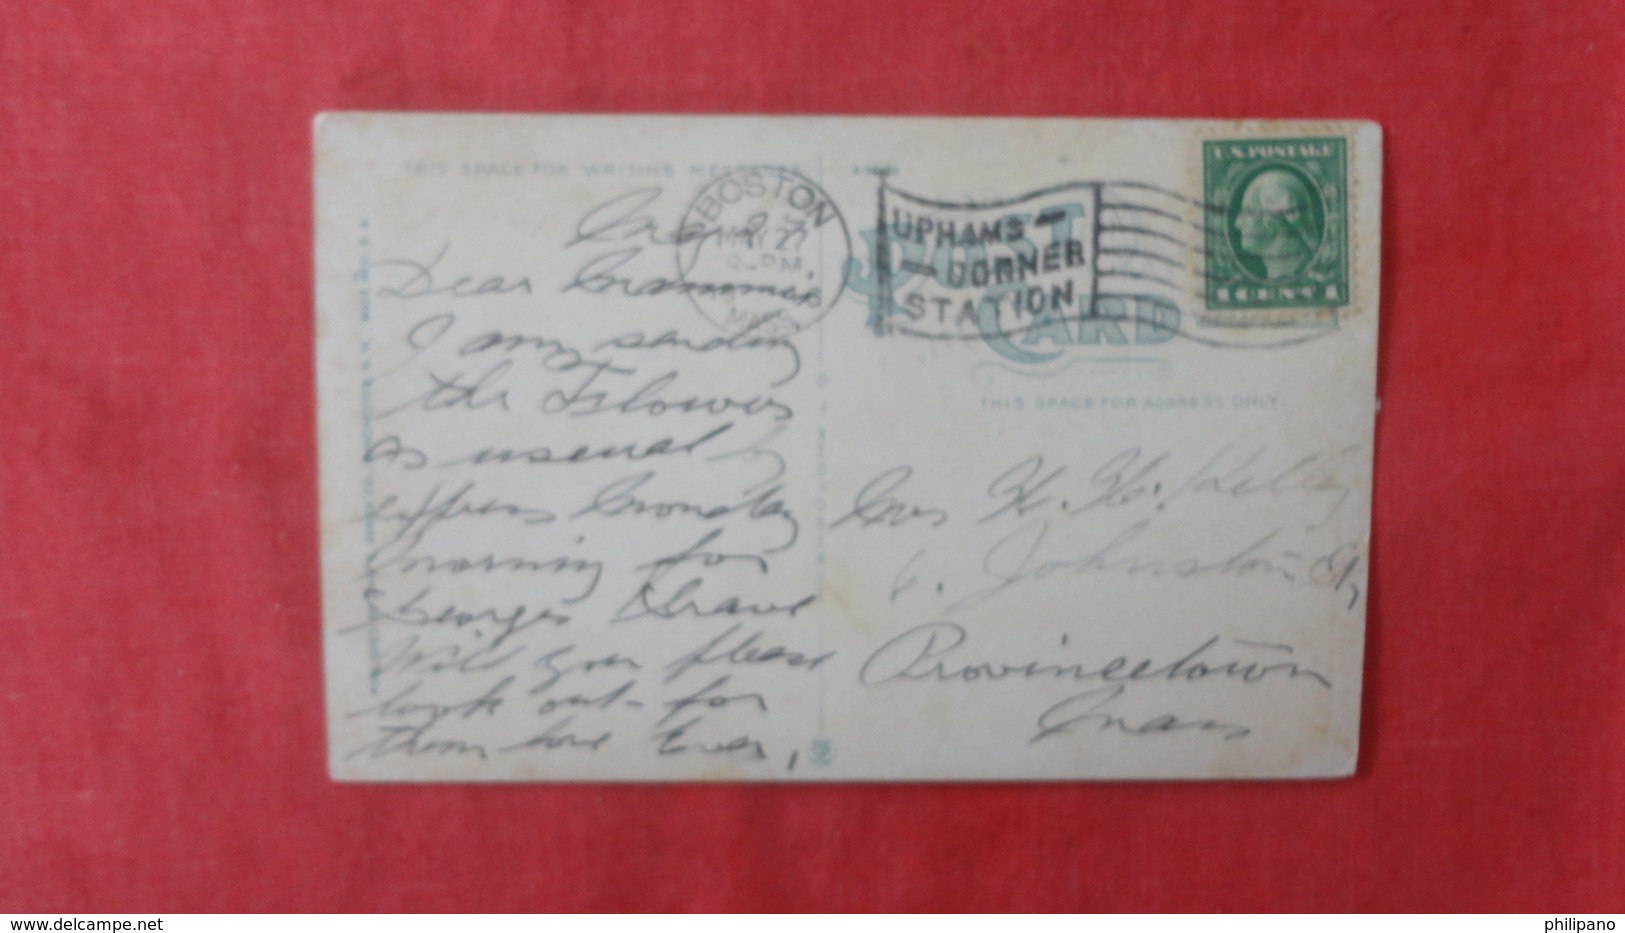 THIS SPACE FOR WRITING MESSAGES
May 27
Dear Gramma
I am sending
the Flowers
as useual by
express Monday
morning for
Georges Grave
Will you please
look out for
them love Ever,
BOSTON
MAY 27
PM
MASS.
UPHAMS
CORNER
STATION
U.S. POSTAGE
1 CENT 1
POST CARD
THIS SPACE FOR ADDRESS ONLY.
Mrs H. H. Kelley
6. Johnston St,
Provincetown
Mass
www.delcampe.net
philipano